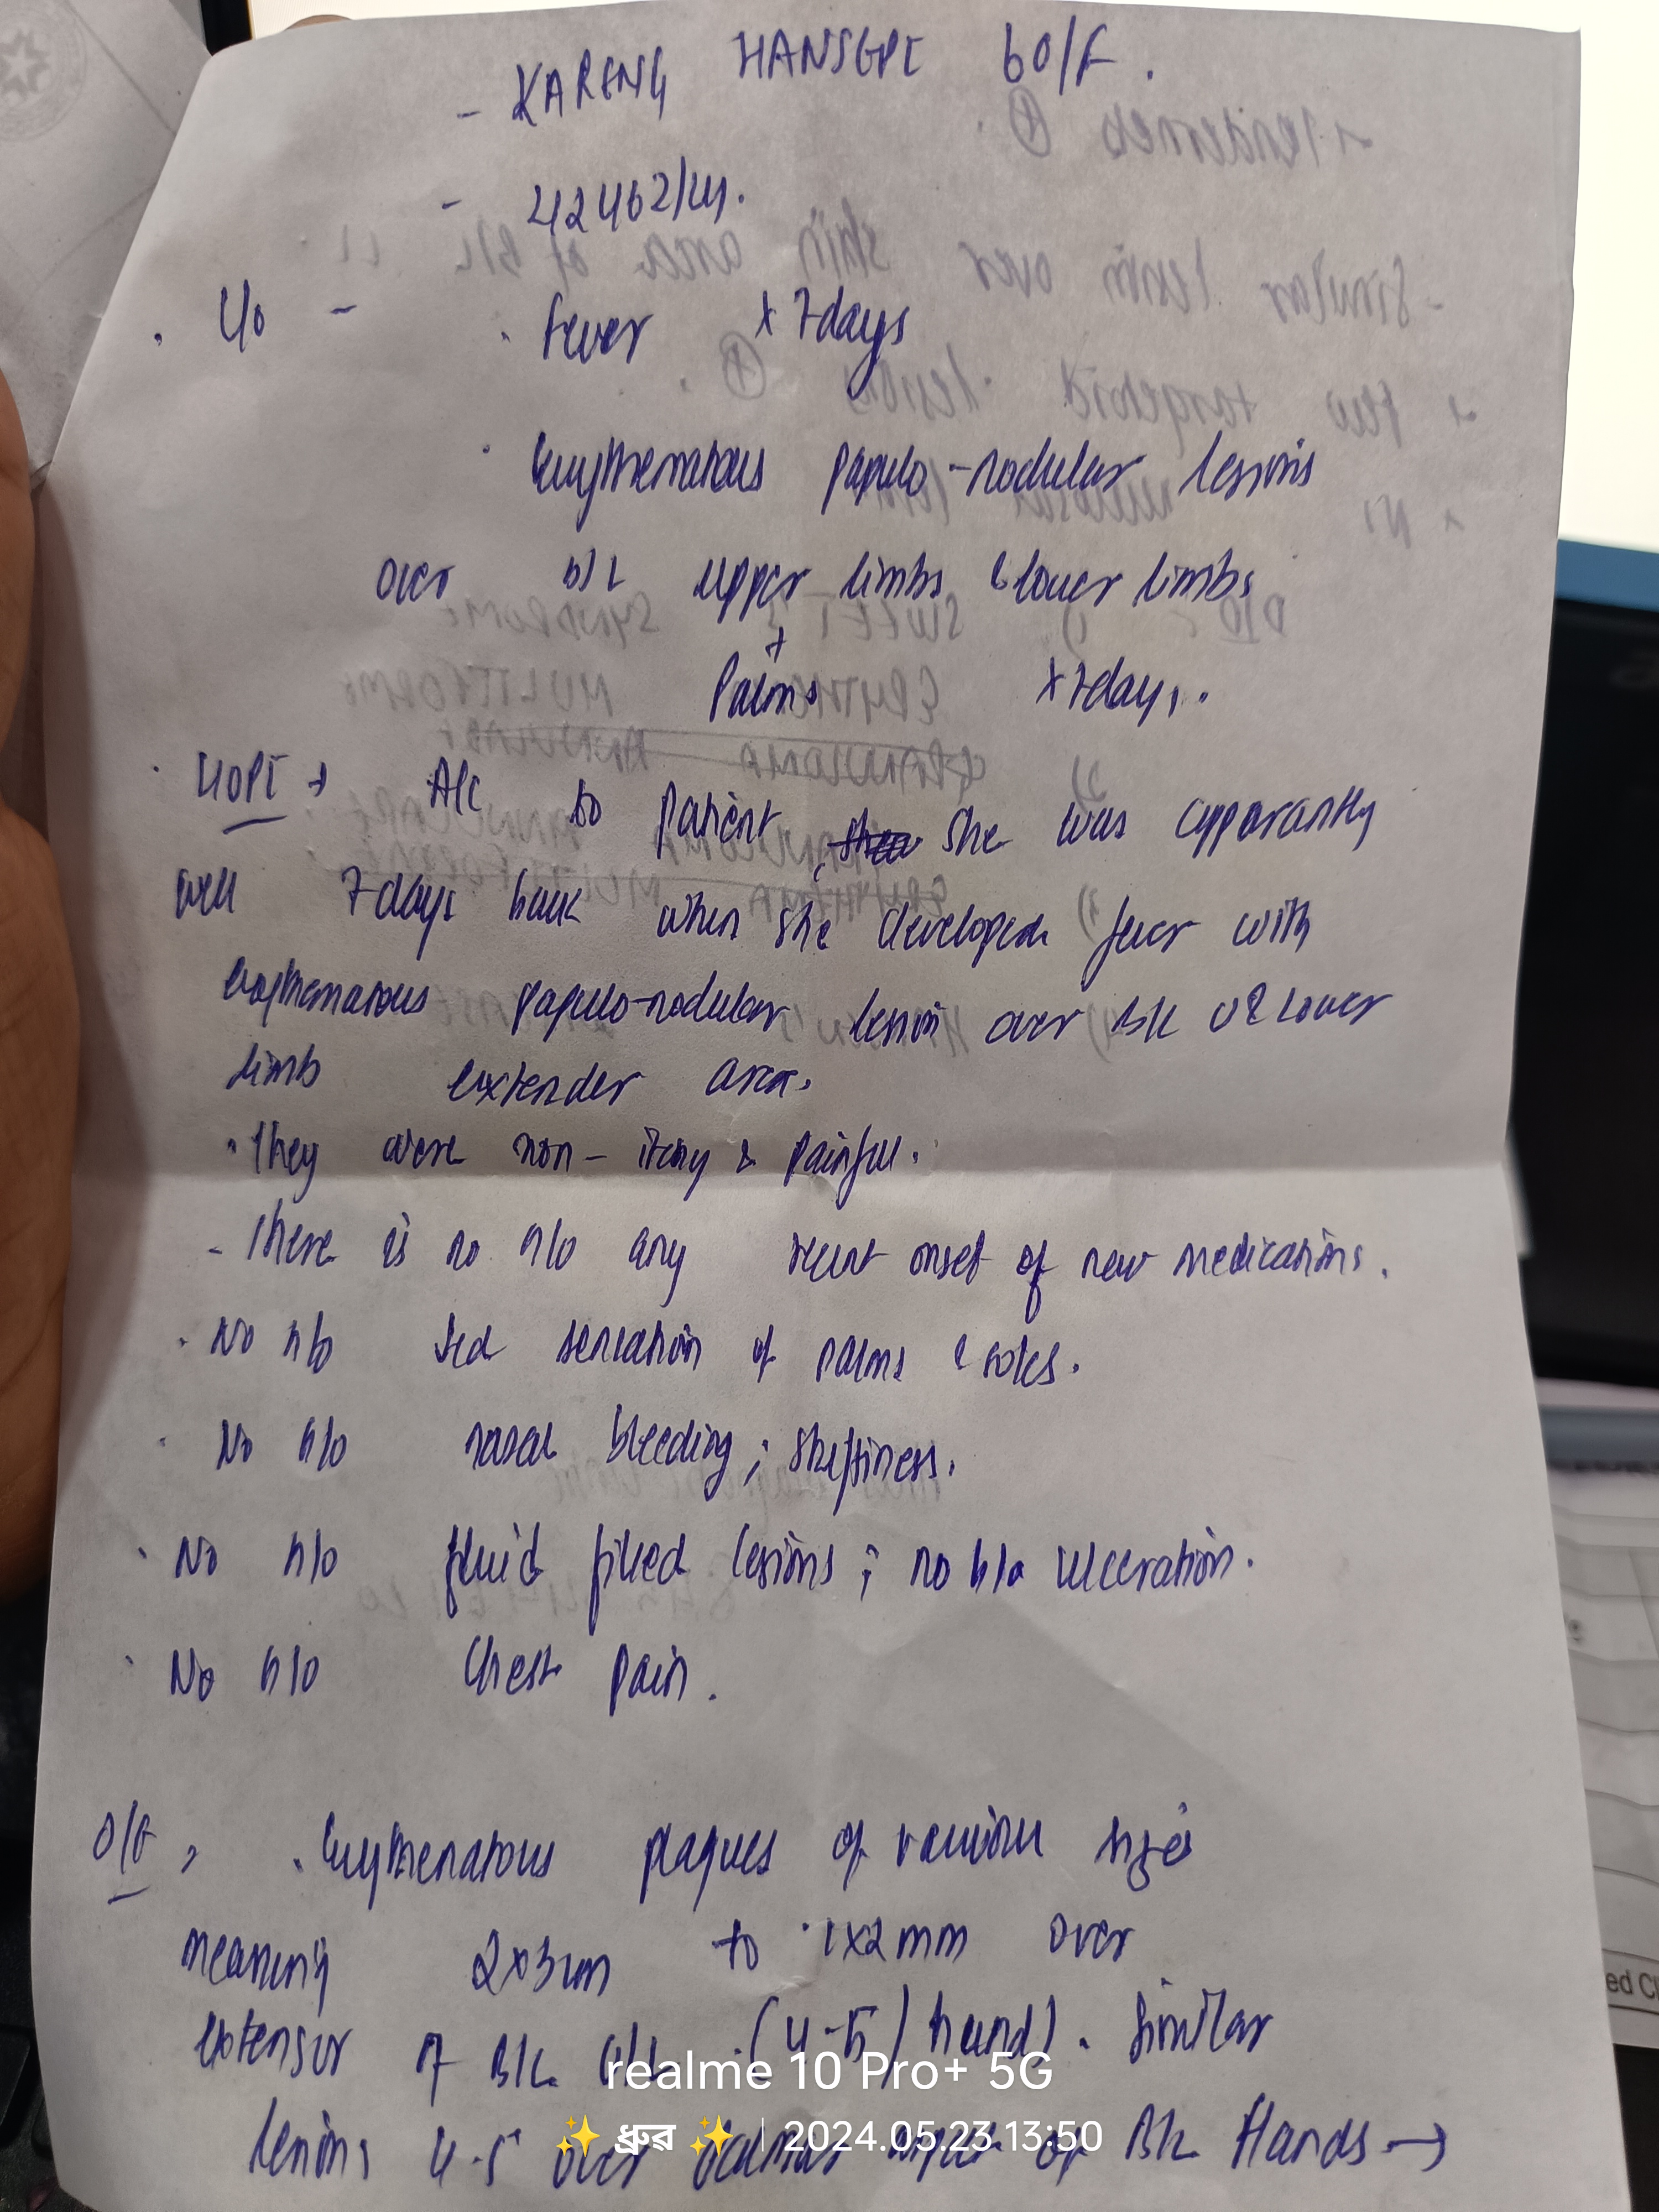 - KARENG HANSEPI 60/F.
- 42462/24.
. C/o - . fever x 7days
. Erythematous papulo-nodular lessions
over B/L upper limbs & lower limbs
+
Palms x 7days.
. HOPI → A/c to patient, she was apparantly
well 7days back when she developed fever with
erythematous papulo-nodular lesion over B/L U & Lower
limb extender area.
. They were non-itchy & painful.
- There is no h/o any recent onset of new medications.
. No h/o red sensation of palms & soles.
. No h/o nasal bleeding; stuffiness.
. No h/o fluid filled lesions; no h/o ulceration.
. No h/o Chest pain.
O/E → . Erythematous plaques of various sizes
measuring 2x3cm to 1x2mm over
extensor of B/L (4-5/hand). Similar
lesions 4-5 over palmar aspect of B/L Hands →
realme 10 Pro+ 5G
✨ ধ্রুৱ ✨ | 2024.05.23 13:50